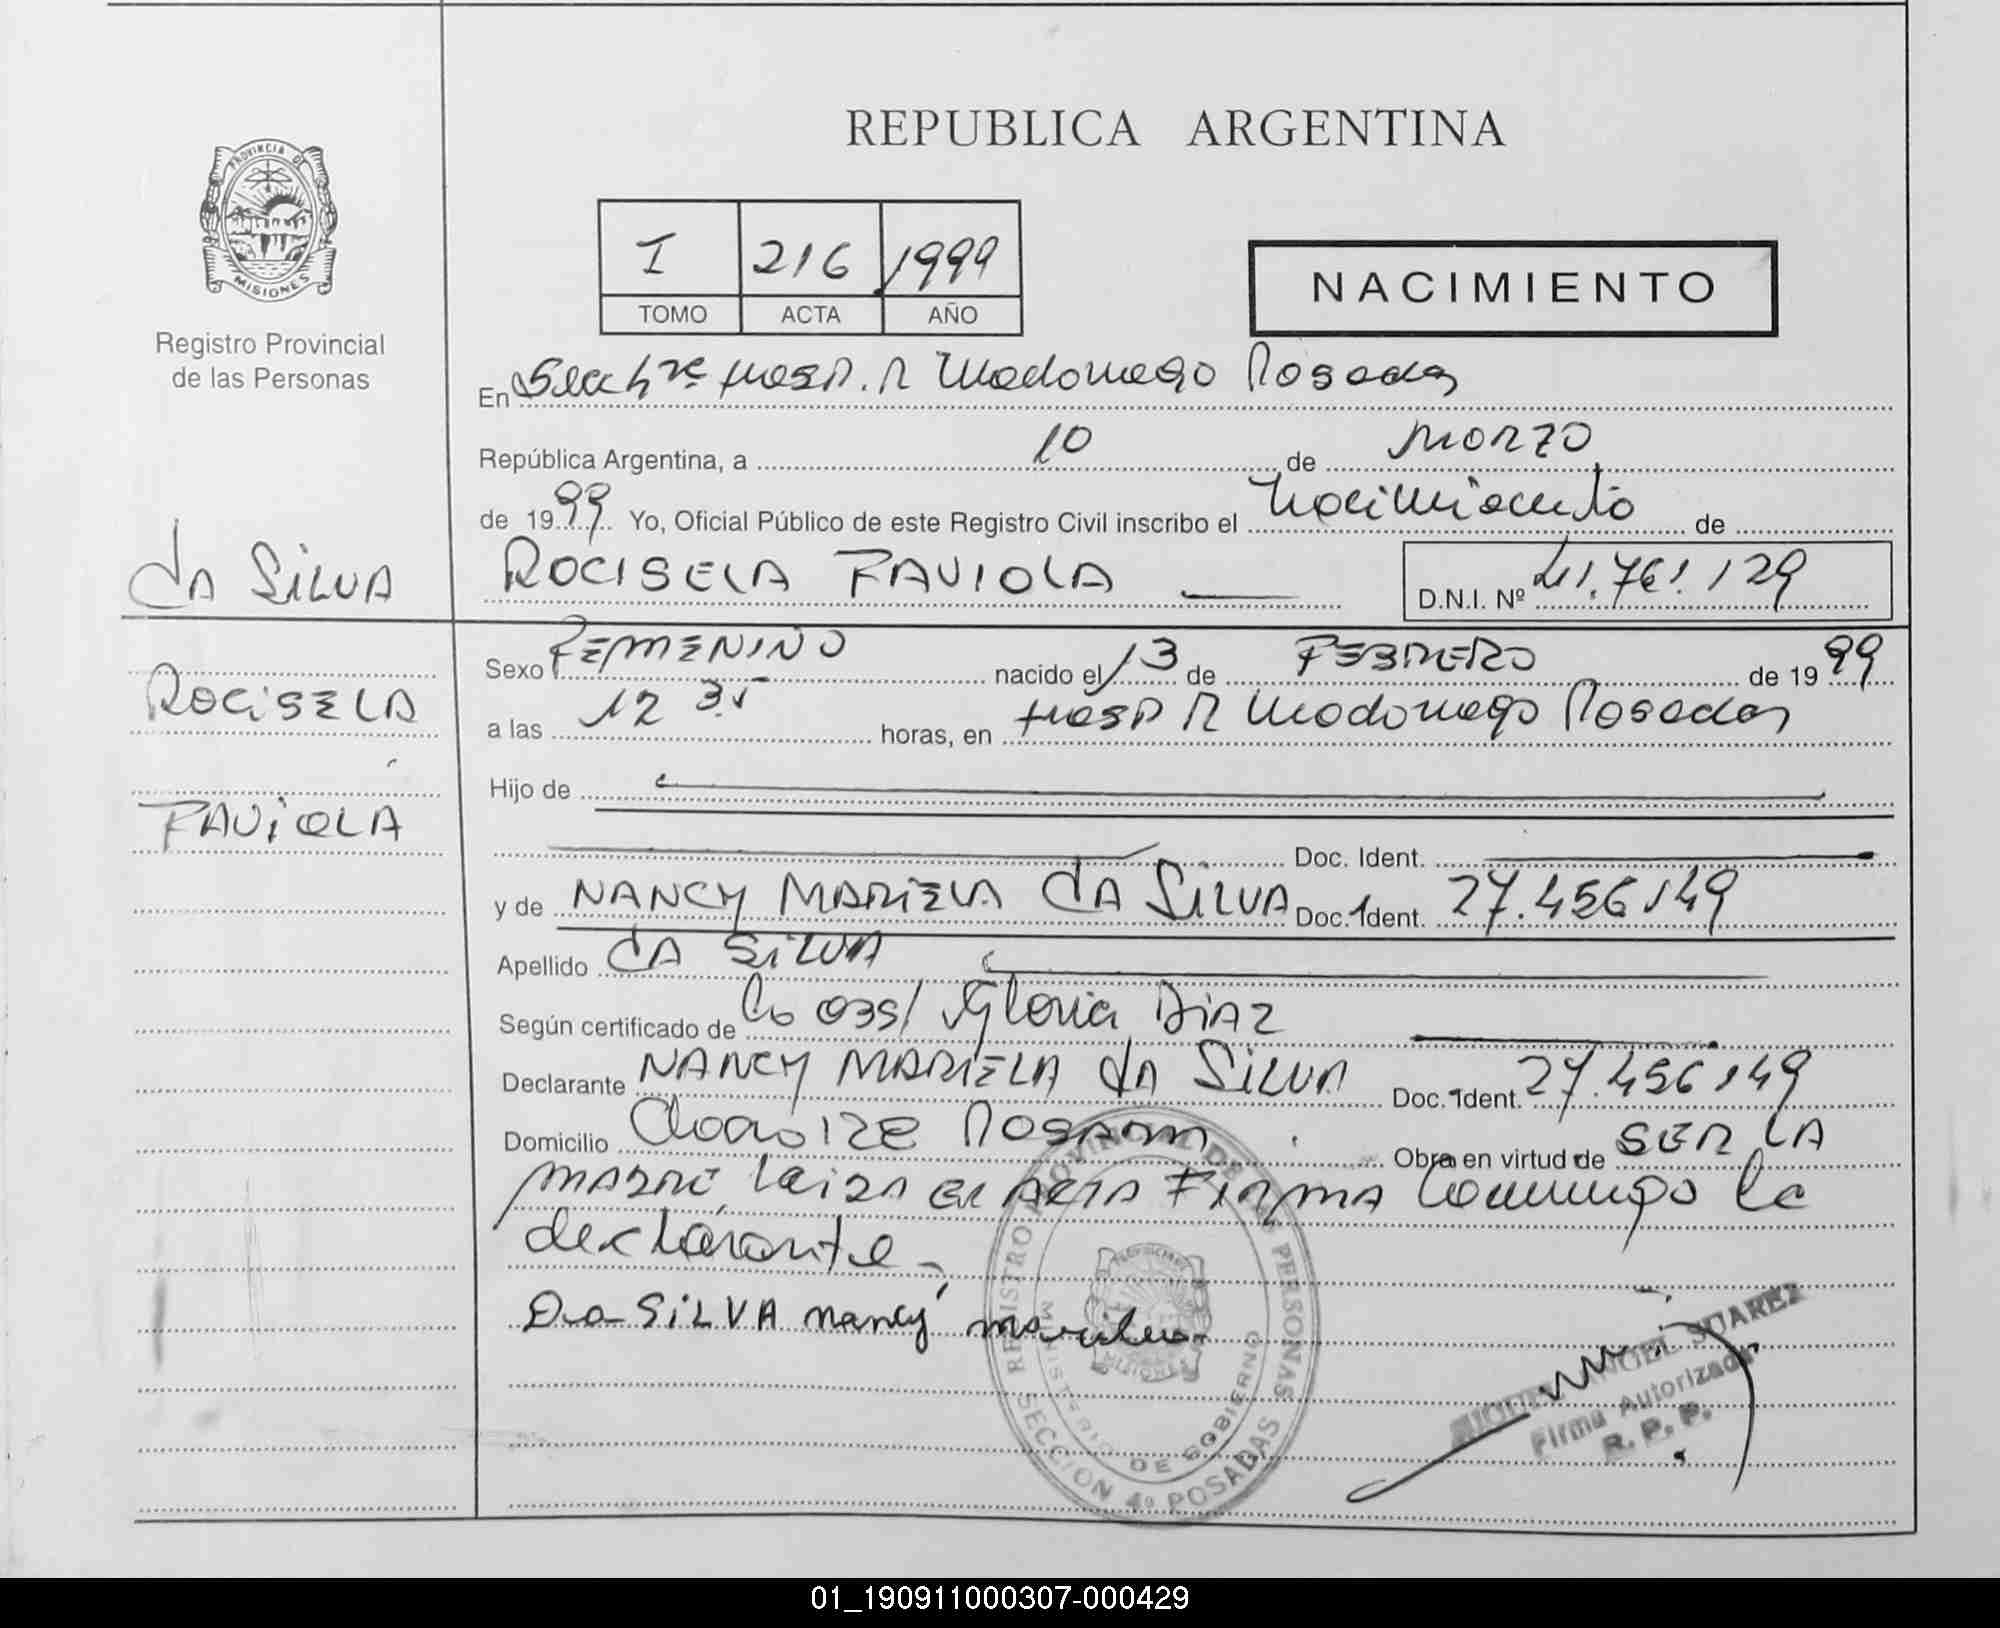 REPUBLICA ARGENTINA
PROVINCIA DE
MISIONES
Registro Provincial
de las Personas
I 216 1999
TOMO ACTA AÑO
NACIMIENTO
En Secc 4ta Hosp. R Madariaga Posadas
República Argentina, a 10 de Marzo
de 1999 Yo, Oficial Público de este Registro Civil inscribo el Nacimiento de
da SiLVA
ROCISELA FAVIOLA
D.N.I. Nº 41.761.129
Sexo FEMENINO nacido el 13 de FEBRERO de 1999
ROCISELA
a las 12 35 horas, en Hosp R Madariaga Posadas
Hijo de
FAViOLA
Doc. Ident.
y de NANCY MARIELA dA SiLVA Doc. Ident. 27.456.149
Apellido dA SiLVA
Según certificado de Gloria DiAZ
Declarante NANCY MARIELA dA SiLVA Doc. Ident. 27.456.149
Domicilio POSADAS Obra en virtud de SER LA
MADRE, Leida El ACTA FIRMA Conmigo la
declarante
Da SiLVA nancy mariela
REGISTRO PROVINCIAL DE LAS PERSONAS
MINISTERIO DE GOBIERNO
SECCION 4º POSADAS
MIGUEL ANGEL SUAREZ
Firma Autorizada
R. P. P.
01_190911000307-000429